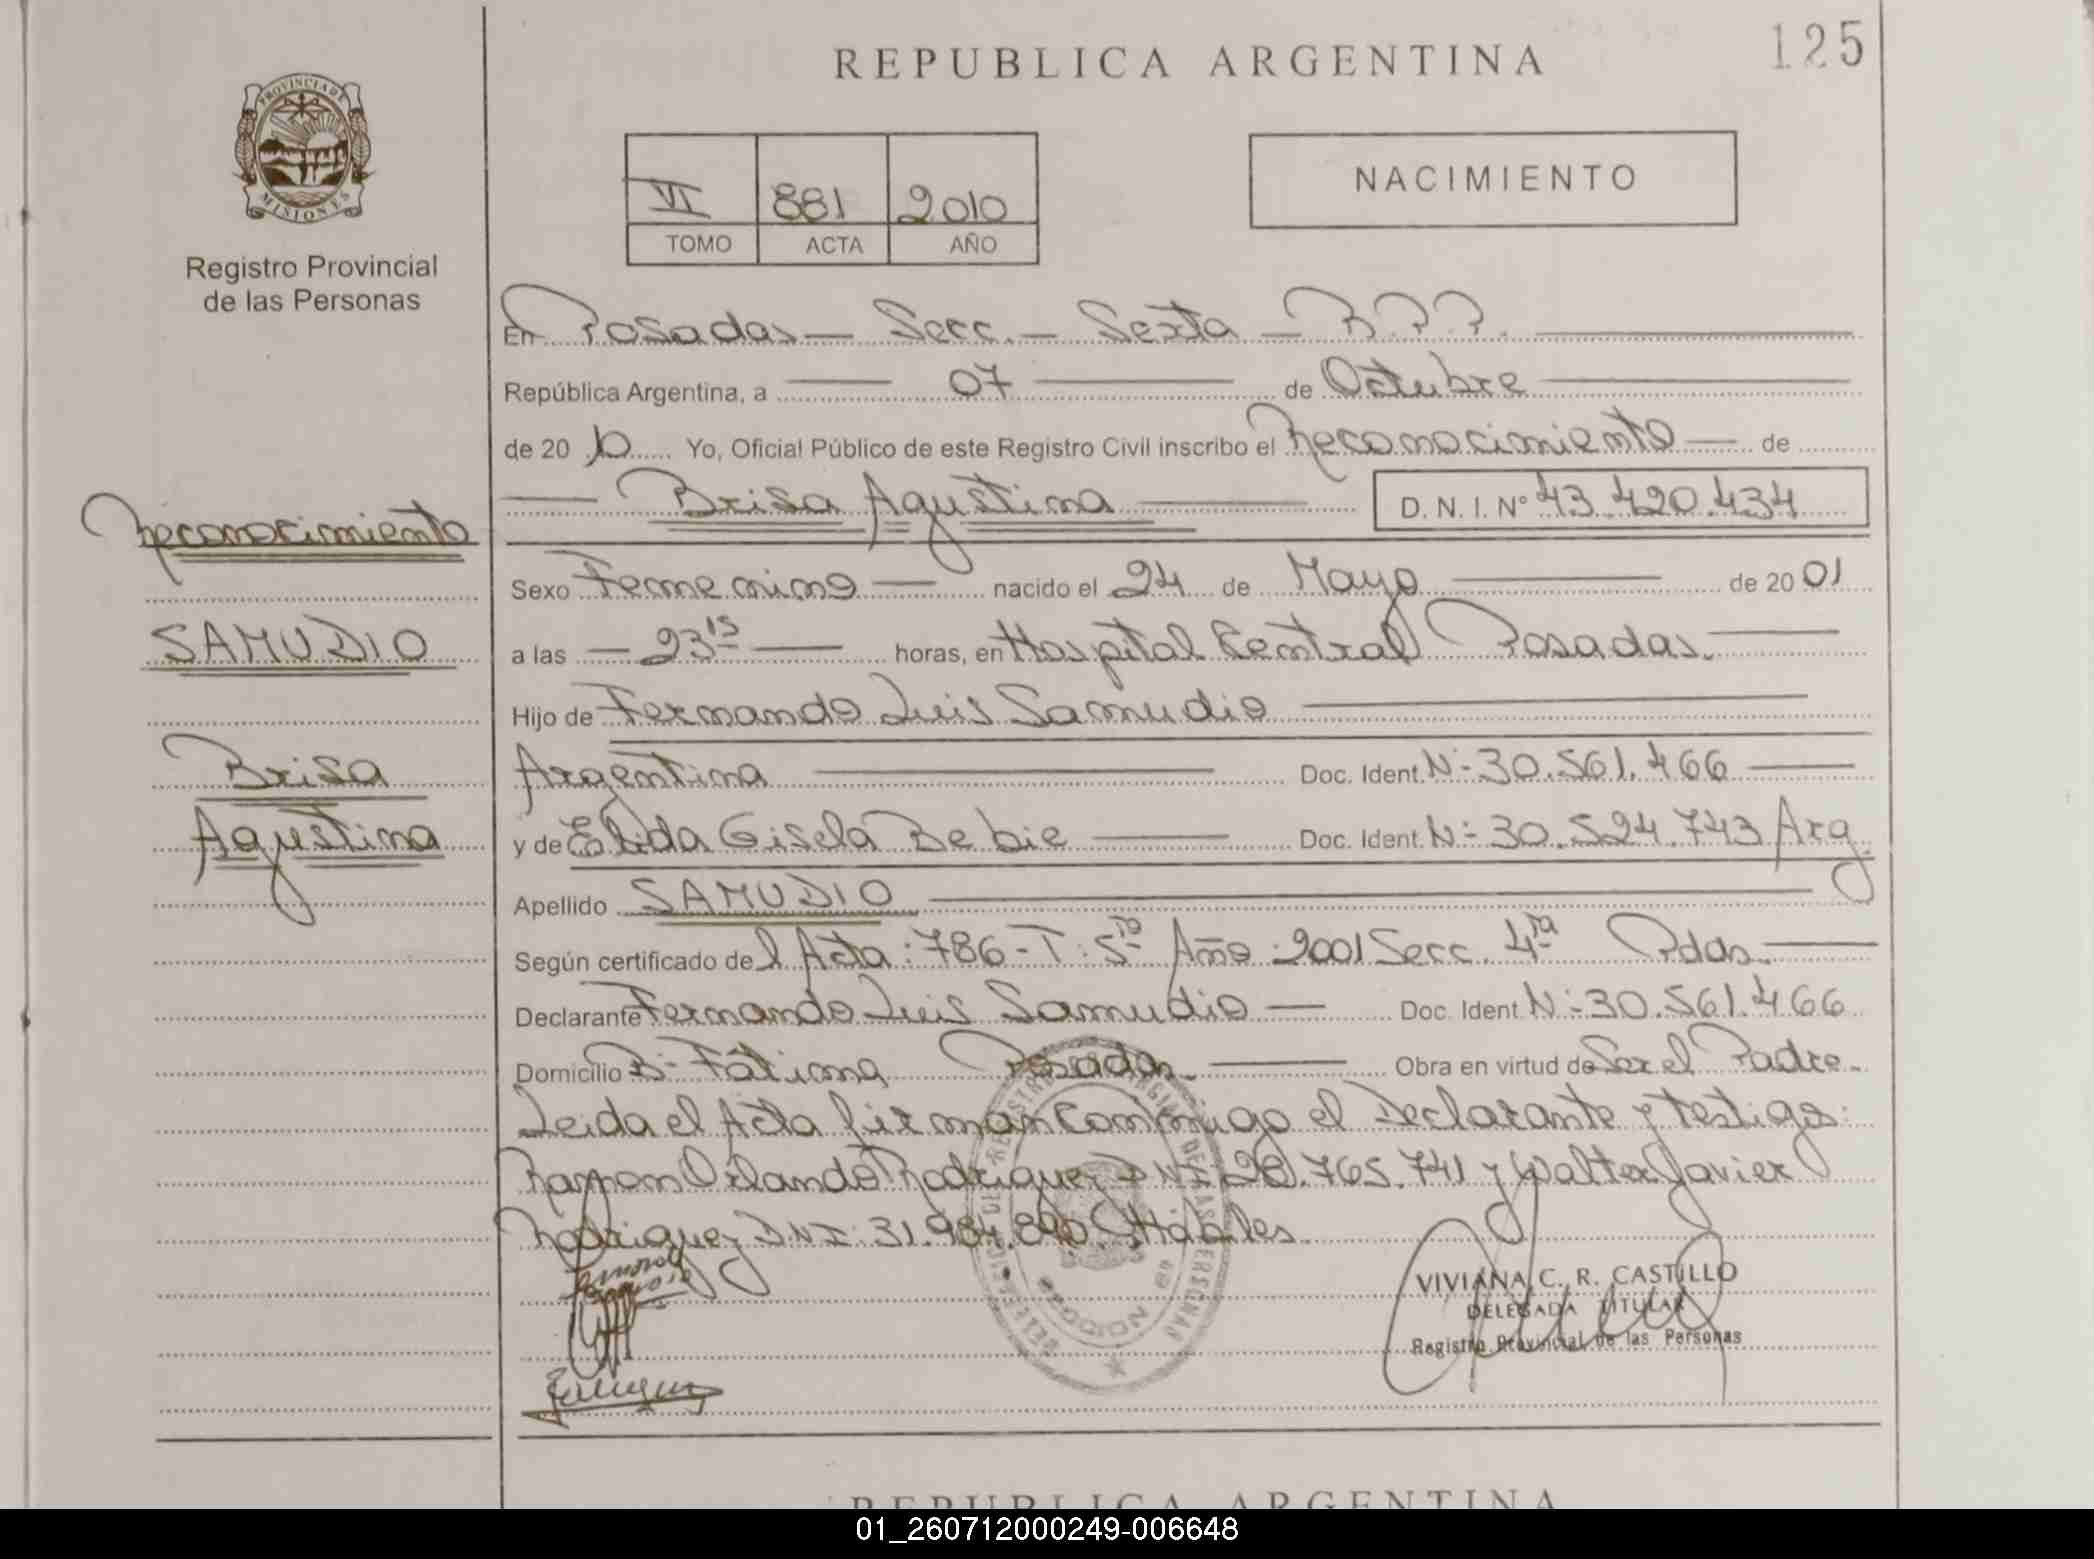 REPUBLICA ARGENTINA
125
PROVINCIA DE
MISIONES
Registro Provincial
de las Personas
VI 881 2010
TOMO ACTA AÑO
NACIMIENTO
En Posadas - Secc. - Sexta - R.P.P.
República Argentina, a 07 de Octubre
de 20 10 Yo, Oficial Público de este Registro Civil inscribo el Reconocimiento de
Brisa Agustina D. N. I. Nº 43.420.434
Reconocimiento
SAMUDIO
Brisa
Agustina
Sexo Femenino nacido el 24 de Mayo de 20 01
a las 23 15 horas, en Hospital Central Posadas.
Hijo de Fernando Luis Samudio
Argentina Doc. Ident. Nº 30.561.466
y de Elida Gisela Bebie Doc. Ident. Nº 30.524.743 Arg.
Apellido SAMUDIO
Según certificado de l Acta: 786 - T: 5to Año: 2001 Secc. 4ta Pdas.
Declarante Fernando Luis Samudio Doc. Ident Nº 30.561.466
Domicilio Bº Fátima Posadas. Obra en virtud de Ser el Padre.
Leida el Acta firman conmigo el Declarante y testigos:
Ramon Orlando Rodriguez DNI 28.765.741 y Walter Javier
Rodriguez DNI: 31.984.890. Hábiles.
VIVIANA C. R. CASTILLO
DELEGADA TITULAR
Registro Provincial de las Personas
REPUBLICA ARGENTINA
01_260712000249-006648